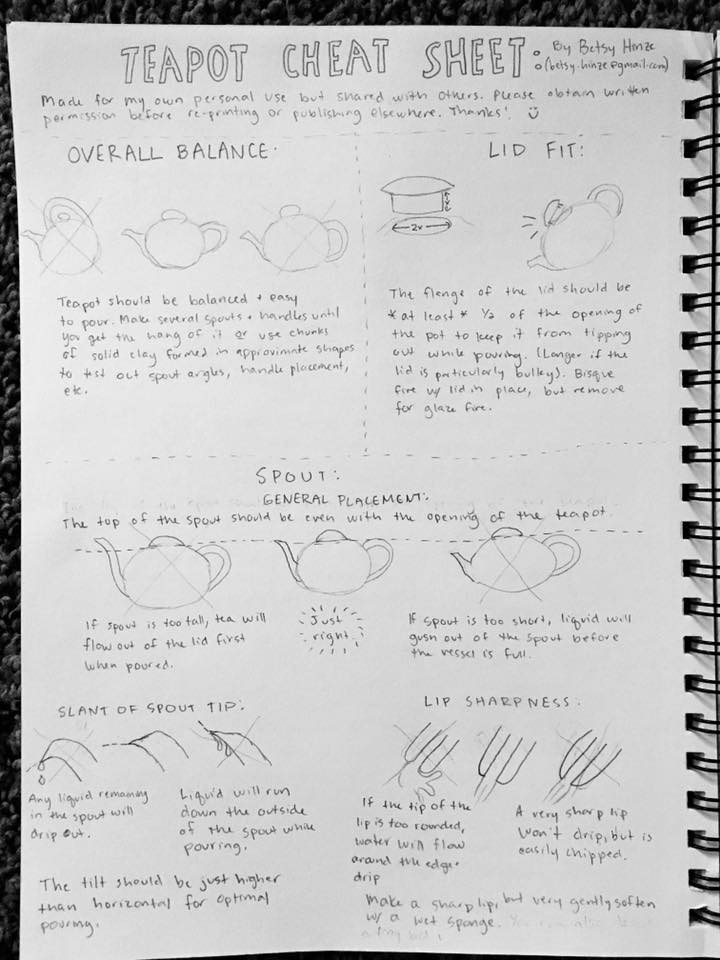 TEAPOT CHEAT SHEET: By Betsy Hinze
(betsy.hinze@gmail.com)
Made for my own personal use but shared with others. Please obtain written
permission before re-printing or publishing elsewhere. Thanks!
OVERALL BALANCE:
Teapot should be balanced + easy
to pour. Make several spouts + handles until
you get the hang of it or use chunks
of solid clay formed in approximate shapes
to test out spout angles, handle placement,
etc.
LID FIT:
2x
The flange of the lid should be
*at least* 1/2 of the opening of
the pot to keep it from tipping
out while pouring. (Longer if the
lid is particularly bulky). Bisque
fire w/ lid in place, but remove
for glaze fire.
SPOUT:
GENERAL PLACEMENT:
The top of the spout should be even with the opening of the teapot.
If spout is too tall, tea will
flow out of the lid first
when poured.
Just
right
If spout is too short, liquid will
gush out of the spout before
the vessel is full.
SLANT OF SPOUT TIP:
Any liquid remaining
in the spout will
drip out.
Liquid will run
down the outside
of the spout while
pouring.
The tilt should be just higher
than horizontal for optimal
pouring.
LIP SHARPNESS:
If the tip of the
lip is too rounded,
water will flow
around the edge +
drip
A very sharp lip
won't drip, but is
easily chipped.
Make a sharp lip, but very gently soften
w/ a wet sponge. You can also